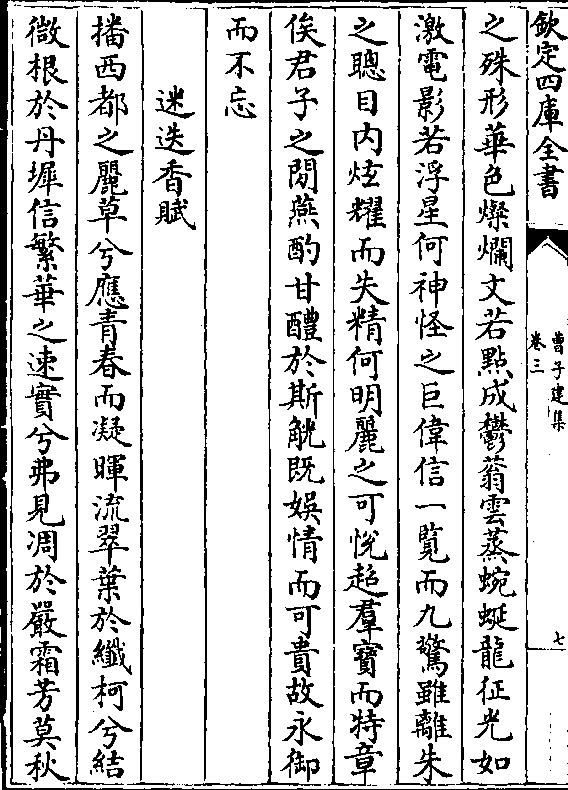 欽定四庫全書
曹子建集
卷三
七
之殊形華色燦爛文若點成鬱蓊雲蒸蜿蜒龍征光如
激電影若浮星何神怪之巨偉信一覽而九驚雖離朱
之聰目内炫耀而失精何明麗之可悅超羣寳而特章
俟君子之閒燕酌甘醴於斯觥既娛情而可貴故永御
而不忘
迷迭香賦
播西都之麗草兮應青春而凝暉流翠葉於纖柯兮結
微根於丹墀信繁華之速實兮弗見凋於嚴霜芳莫秋